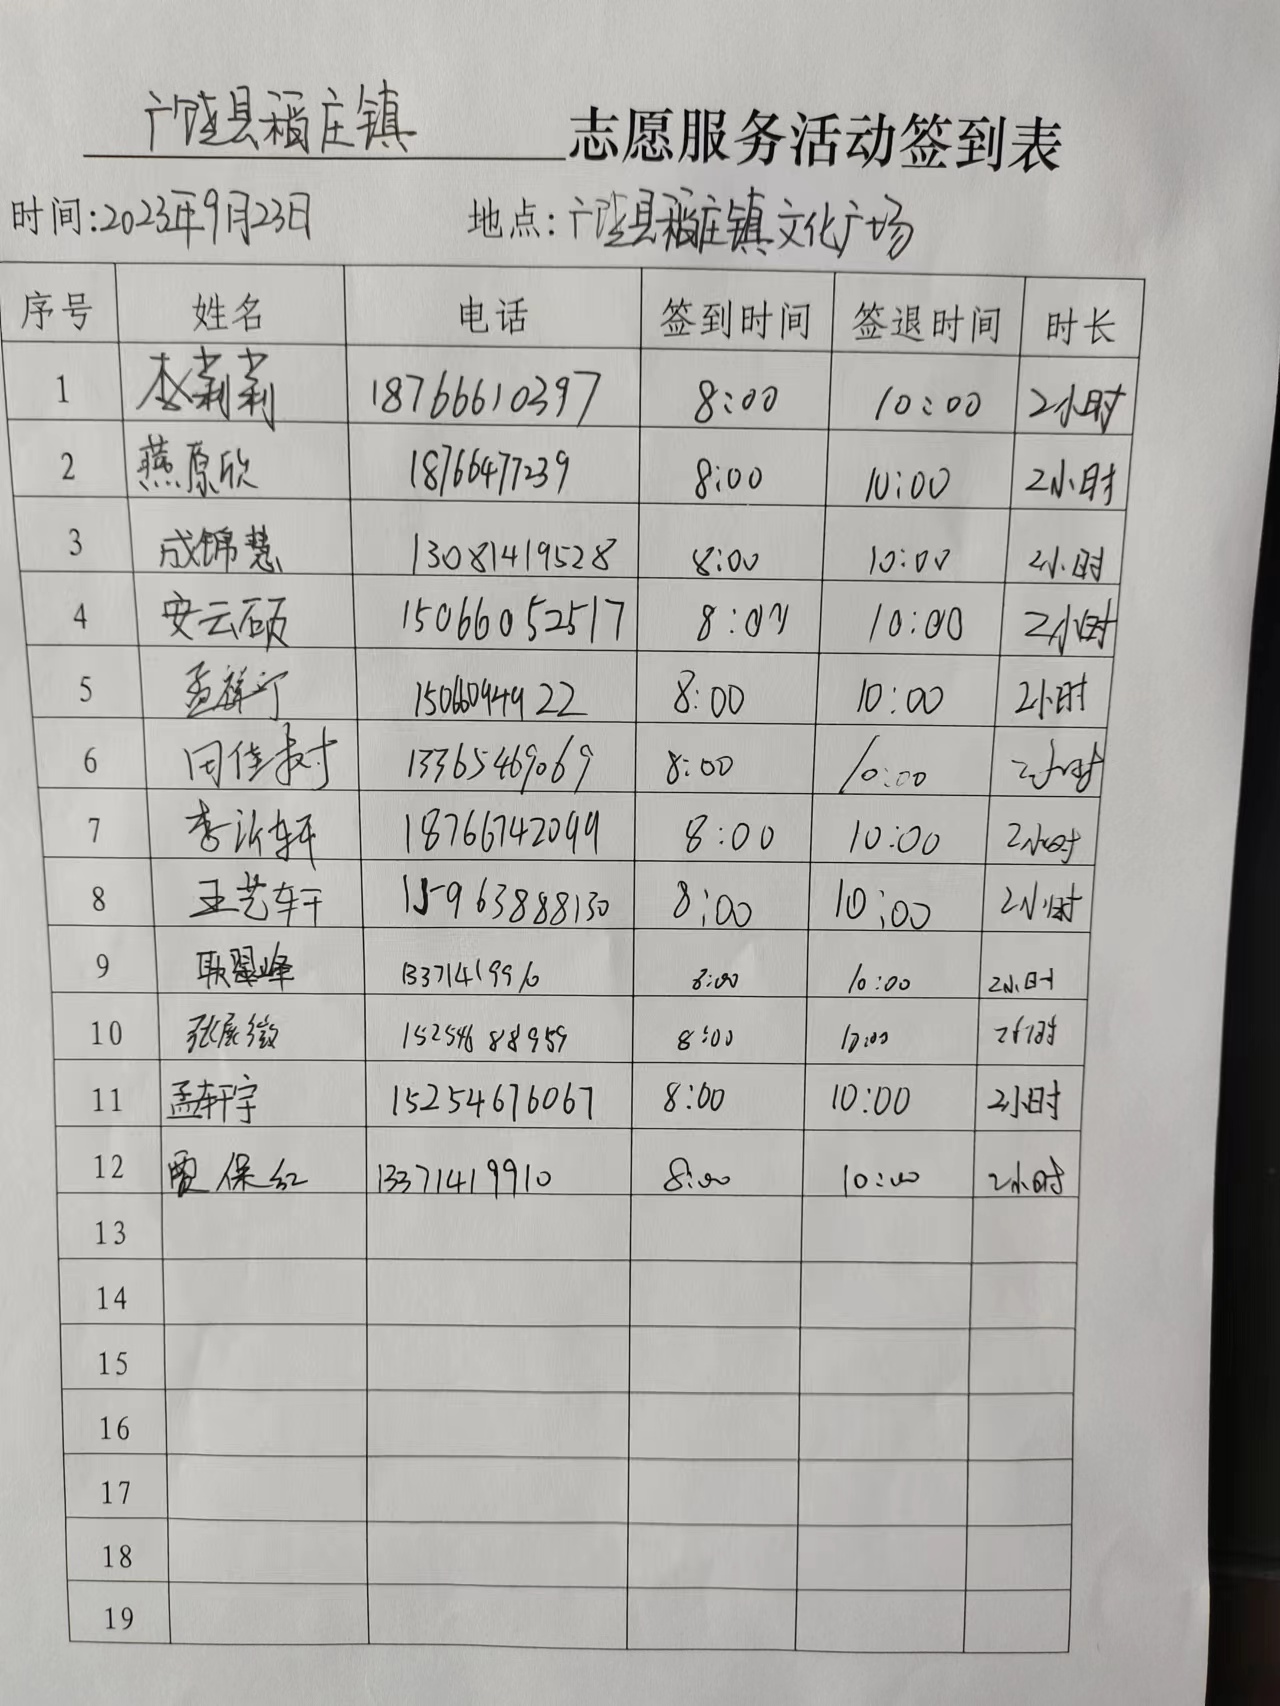 广饶县稻庄镇 志愿服务活动签到表
时间:2023年9月23日 地点:广饶县稻庄镇文化广场
序号 姓名 电话 签到时间 签退时间 时长
1 李莉莉 18766610397 8:00 10:00 2小时
2 燕原欣 18766477239 8:00 10:00 2小时
3 成锦慧 13081419528 8:00 10:00 2小时
4 安云硕 15066052517 8:00 10:00 2小时
5 孟祥 15066094922 8:00 10:00 2小时
6 田佳树 13365469069 8:00 10:00 2小时
7 李沂轩 18766742099 8:00 10:00 2小时
8 王艺轩 15963888130 8:00 10:00 2小时
9 耿翠峰 13371419910 8:00 10:00 2小时
10 15254688959 8:00 10:00 2小时
11 孟轩宇 15254676067 8:00 10:00 2小时
12 贾保红 13371419910 8:00 10:00 2小时
13
14
15
16
17
18
19